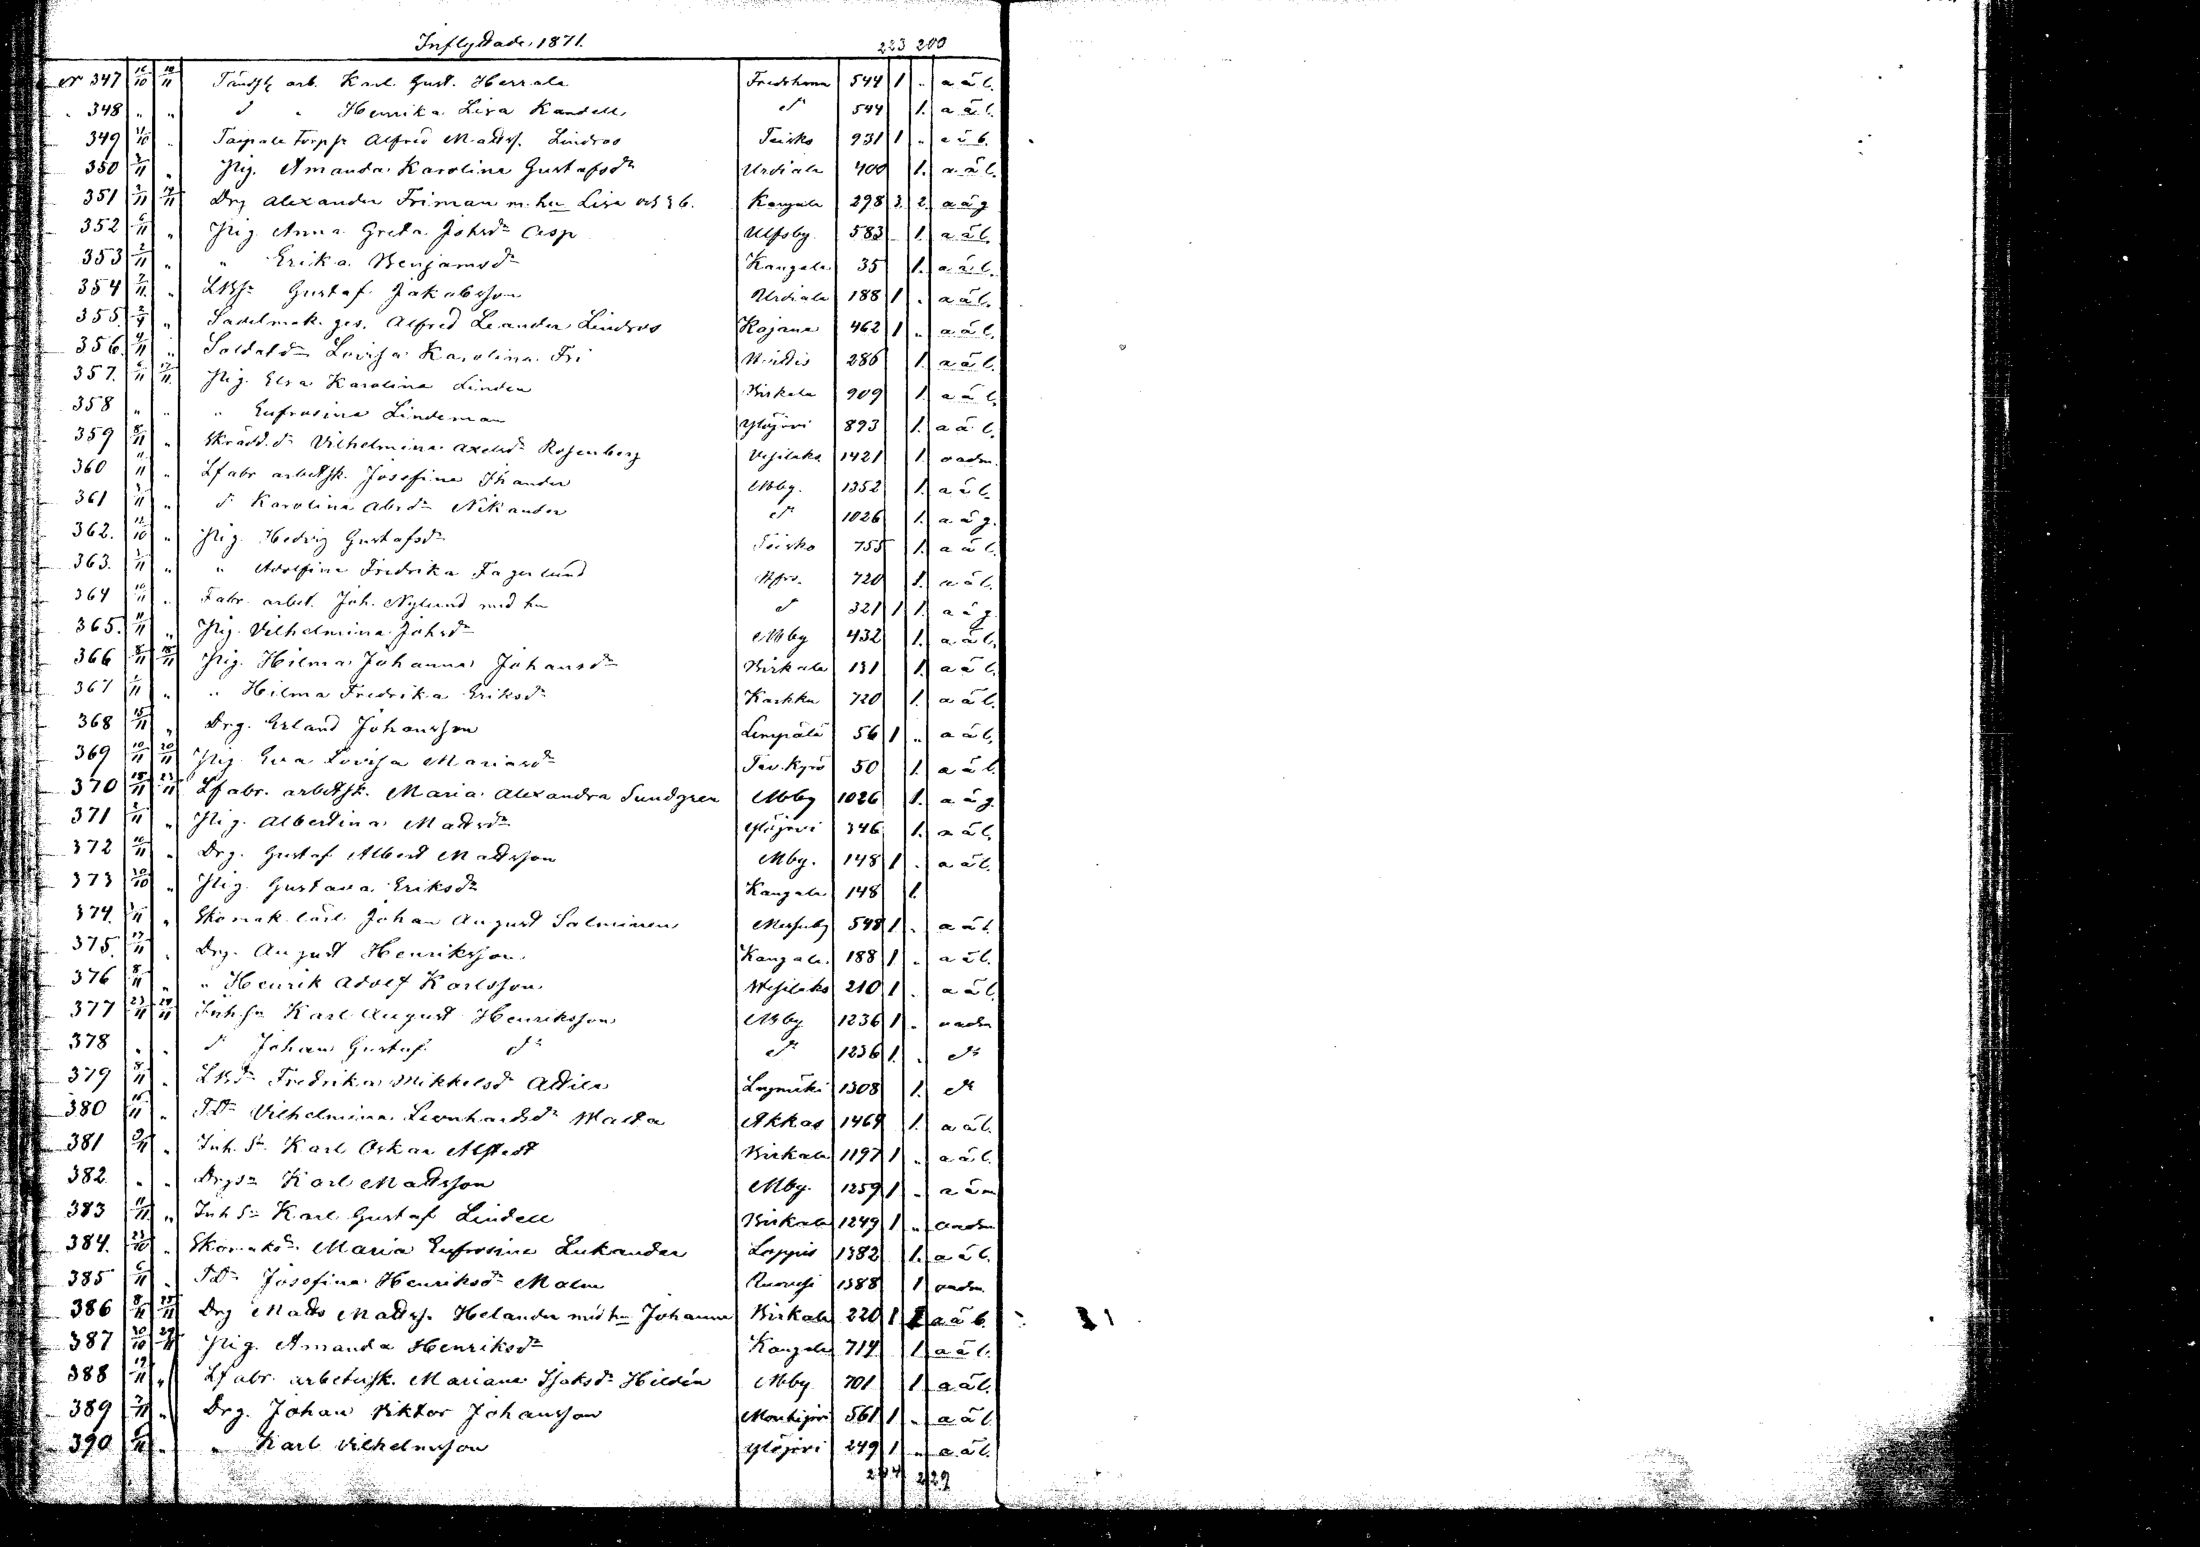 Inflyttade 1871. 223 200
Nr 347 16/10 10/11 arb. Karl Gust. Herrala Fredshamn 544 1 „ a ä l.
„ 348 „ „ d „ Henrika Lisa Kandell do 544 1. a ä l.
349 /10 „ Taipale torpp. Alfred Mattss. Lindros Teisko 931 1 „
350 /11 „ Pig. Amanda Karolina Gustafsdr Urdiala 400 1. a ä l.
351 /11 /11 Drg Alexander Friman m. hu Lisa och 3 b. Kangala 298 3. 2. a ä g
352 6/11 „ Pig. Anna Greta Johsdr Asp Ulfsby 583 1. a ä l.
353 2/11 „ „ Erika Benjamsdr Kangala 35 1. a ä l.
354 7/11 „ Gustaf Jakobsson Urdiala 188 1 „ a ä l.
355. „ Sadelmak. ges. Alfred Leander Lindros Kajana 462 1 „ a ä l.
356. 4/11 „ Soldatdr Lovisa Karolina Fri 286 1. a ä l.
357. /11 17/11 Pig. Elsa Karolina Linden Birkala 909 1. a ä l.
358 „ „ „ Eufrosina Lindeman Ylöjärvi 893 1. a ä l.
359 8/11 „ Skrädd. dr Vilhelmina Axelsdr Rosenberg Vesilaks 1421 1. oadm.
360 /11 „ Lfabr arbetsk. Josefina Ikander Mby. 1352 1. a ä l.
361 /11 „ d Karolina Absdr Nikander do 1026 1. a ä g.
362. 12/10 „ Pig. Hedvig Gustafsdr Teisko 755 1. a ä l.
363. /11 „ „ Adolfina Fredrika Fagerlund 720 1. a ä l.
364 10/11 „ Fabr. arbet. Joh. Nylund med hu d 321 1 1. a ä g.
365. 11/11 „ Pig. Vilhelmina Johsdr Mby 432 1. a ä l.
366 8/11 18/11 Pig. Hilma Johanna Johansdr Birkala 131 1. a ä l.
367 /11 „ „ Hilma Fredrika Eriksdr Karkku 720 1. a ä l.
368 15/11 „ Drg. Erland Johansson Lempälä 56 1 „ a ä l.
369 10/11 20/11 Pig. Eva Lovisa Mariasdr Tav. Kyrö 50 1. a ä l.
370 18/11 23/11 Lfabr. arbetsk. Maria Alexandra Sundgren Mby 1026 1. a ä g.
371 /11 „ Pig. Albertina Mattsdr Ylöjärvi 346 1. a ä l.
372 10/11 „ Drg. Gustaf Albert Mattsson Mby. 148 1 „ a ä l.
373 30/10 „ Pig. Gustava Eriksdr Kangala 148 1.
374. /11 „ Skomak. lärl. Johan August Salminen Messuby 548 1 „ a ä l.
375. 17/11 „ Drg. August Henriksson Kangala 188 1 „ a ä l.
376 8/11 „ „ Henrik Adolf Karlsson Wesilaks 210 1 „ a ä l.
377 23/11 24/11 Inh. sn Karl August Henriksson Mby 1236 1 „ oadm
378 „ „ d Johan Gustaf dr do 1236 1. „ do
379 8/11 „ Fredrika Mikkelsdr Attila Loymäki 1308 1. do
380 16/11 „ Vilhelmina Leonhardsdr Walta Akkas 1469 1. a ä l.
381 9/11 „ Inh. Sn Karl Oskar Birkala 1197 1 „ a ä l.
382. „ „ Drgsn Karl Mattsson Mby. 1259 1 „ a ä m
383 11/11 „ Inh Sn Karl Gustaf Lindell Birkala 1249 1 „ oadm
384. 23/10 „ Skomaksdr Maria Eufrosina Lukander Loppis 1382 1. a ä l.
385 6/11 „ Josefina Henriksdr Malm Ruovesi 1388 1 oadm.
386 8/11 25/11 Drg Matts Mattss. Helander med hu Johanna Birkala 220 1 1 a ä b.
387 30/10 29/11 Pig. Amanda Henriksdr Kangala 714 1. a ä l.
388 19/11 „ Lfabr. arbetersk. Mariana Isaksdr Hildén Mby 701 1 a ä l.
389 7/11 „ Drg. Johan Viktor Johansson Mouhijärvi 561 1 „ a ä l.
390 /11 „ „ Karl Vilhelmsson Ylöjärvi 249 1 „ a ä l.
244 229